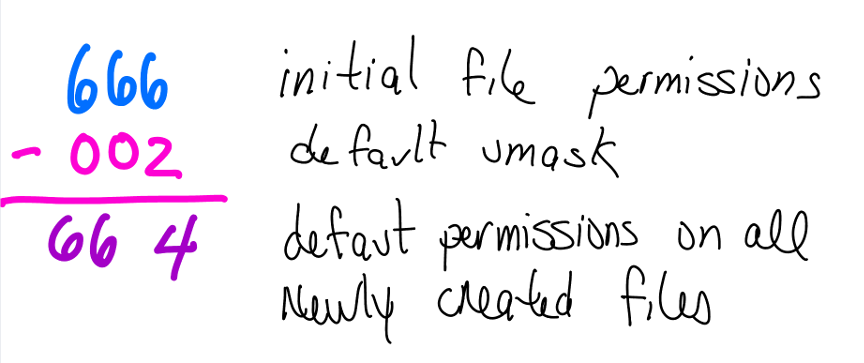 666 initial file permissions
- 002 default umask
664 defaut permissions on all
Newly created files